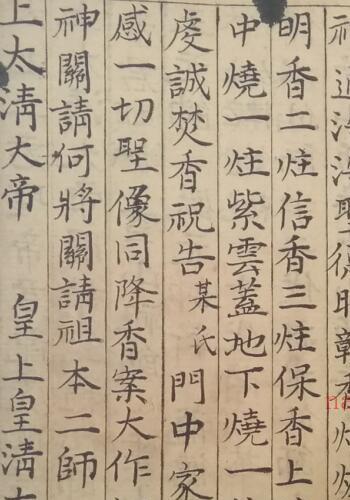 聖德昭彰香
明香二炷信香三炷保香上
中燒一炷紫雲蓋地下燒一
虔誠焚香祝告某氏門中家
感一切聖像同降香案大作
神關請何將關請祖本二師
上太清大帝　皇上皇清